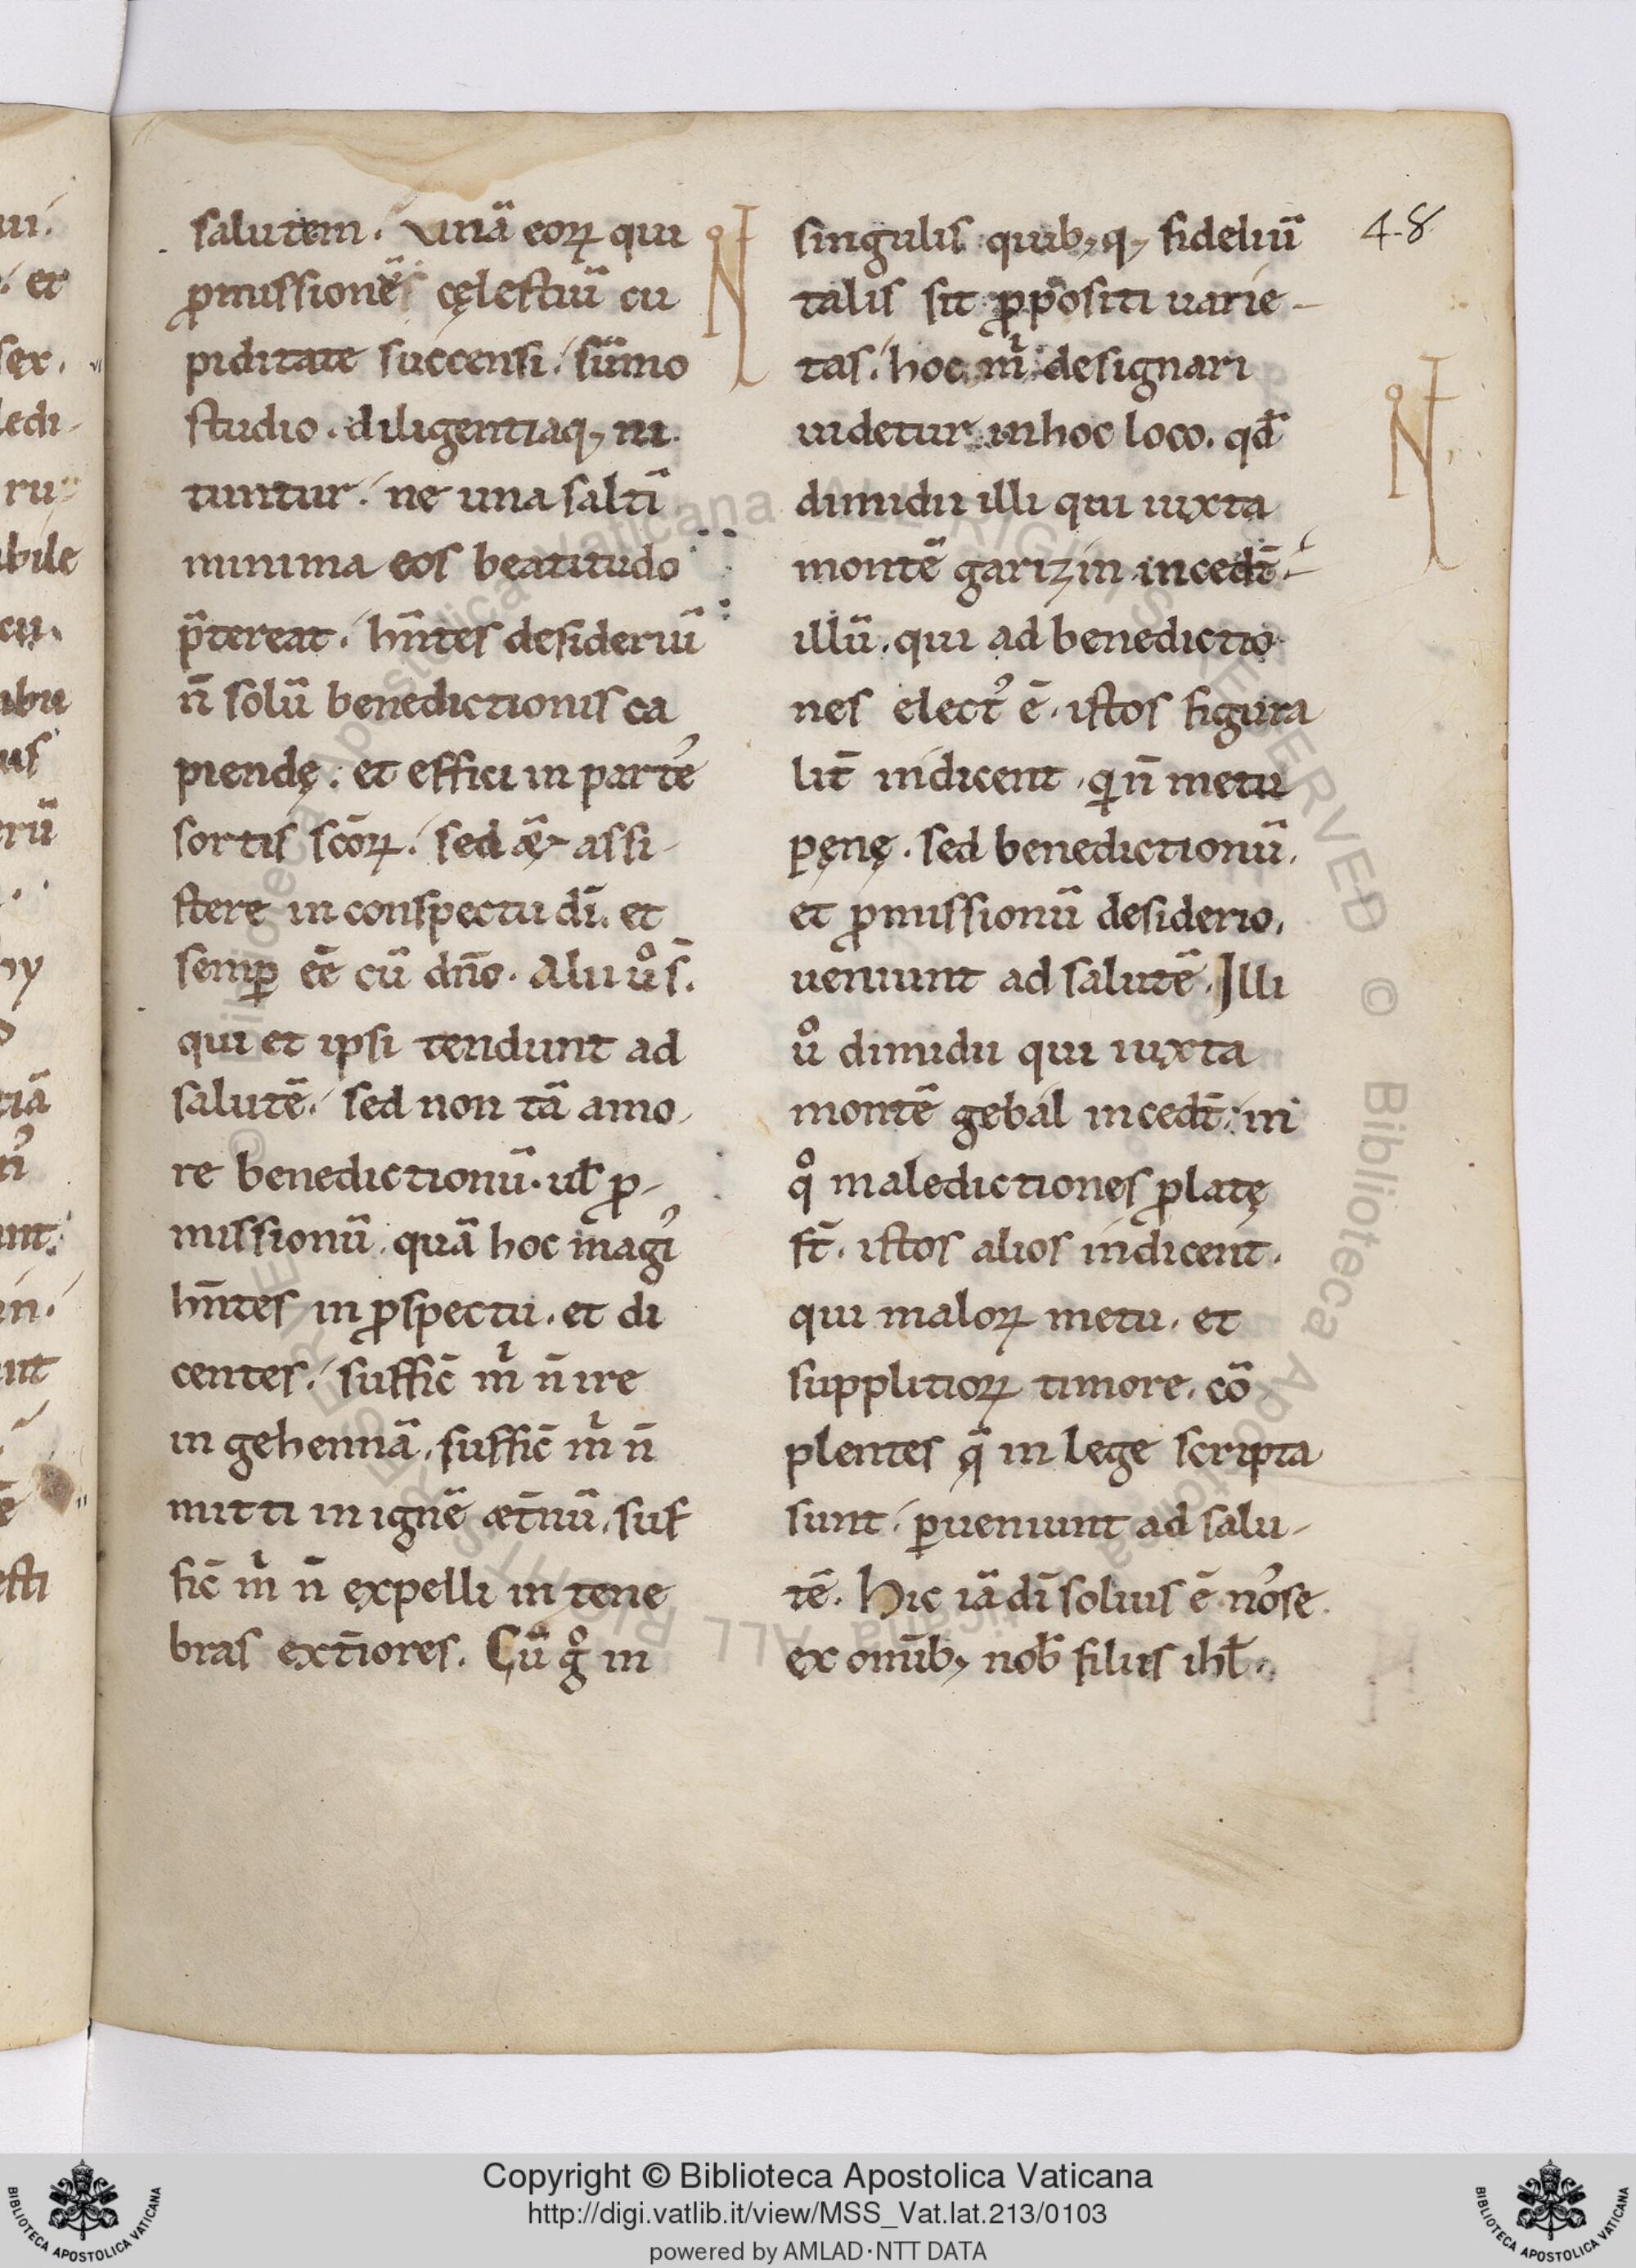 salutem. Vnā eoꝝ qui
ꝓmissionē cęlestiū cu
piditate succensi. sūmo
studio. diligentiaq; ni
tuntur. ne una saltī
minima eos beatitudo
p̄tereat. hn̄tes desideriū
n̄ solū benedictionis ca
piendę. et effici in parte᷒
sortis scōꝝ. sed
assi-
stere in conspectu dī. et
semꝑ eē cū dn̄o. Alii uͦ s̄.
qui et ipsi tendunt ad
salutē. sed non tā amo-
re benedictionū. ul̄ ꝓ-
missionū. quā hoc magi᷒
hn̄tes in ꝓspectu. et di
centes. suffic̄ mͥ n̄ ire
in gehennā. suffic̄ mͥ n̄
mitti in ignē ætn̄ū. suf
fic̄ mͥ n̄ expelli in tene
bras ext̄iores. Cū gͦ in
48
singulis quib; q; fideliū
talis sit ꝓpositi uarie-
tas. hoc mͥ designari
uidetur in hoc loco. qd̄
dimidii illi qui iuxta
montē garizin incedt̄.
illū. qui ad benedictio
nes elect᷒ ē. istos figura
lit̄ indicent. qͥ n̄ metu
pęnę. sed benedictionū.
et ꝓmissionū desiderio.
ueniunt ad salutē. Illi
uͦ dimidii qui iuxta
montē gebal incedt̄. in
qͦ maledictiones ꝓlatę
st̄. istos alios indicent.
qui maloꝝ metu. et
supplitioꝝ timore. cō
plentes q̄ in lege scripta
sunt. ꝑueniunt ad salu-
tē. Hic iā dī solius ē no᷒se
ex omīb; nob̄ filiis ihl̄.
Copyright © Biblioteca Apostolica Vaticana
http://digi.vatlib.it/view/MSS_Vat.lat.213/0103
powered by AMLAD·NTT DATA